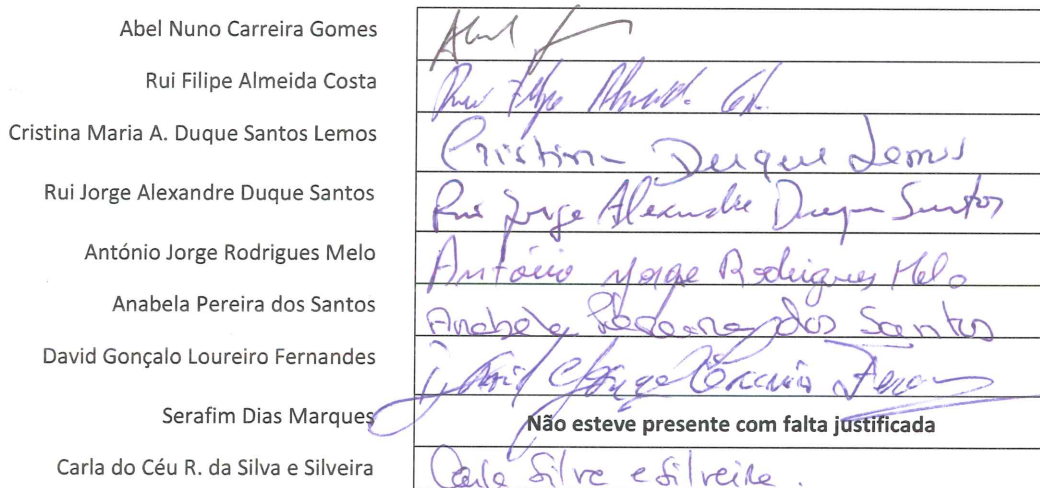 Abel Nuno Carreira Gomes Abel
Rui Filipe Almeida Costa Rui Filipe Almeida
Cristina Maria A. Duque Santos Lemos Cristina Duque Lemos
Rui Jorge Alexandre Duque Santos Rui Jorge Alexandre Duque Santos
António Jorge Rodrigues Melo António Jorge Rodrigues Melo
Anabela Pereira dos Santos Anabela Pereira dos Santos
David Gonçalo Loureiro Fernandes David
Serafim Dias Marques Não esteve presente com falta justificada
Carla do Céu R. da Silva e Silveira Carla Silva e Silveira.